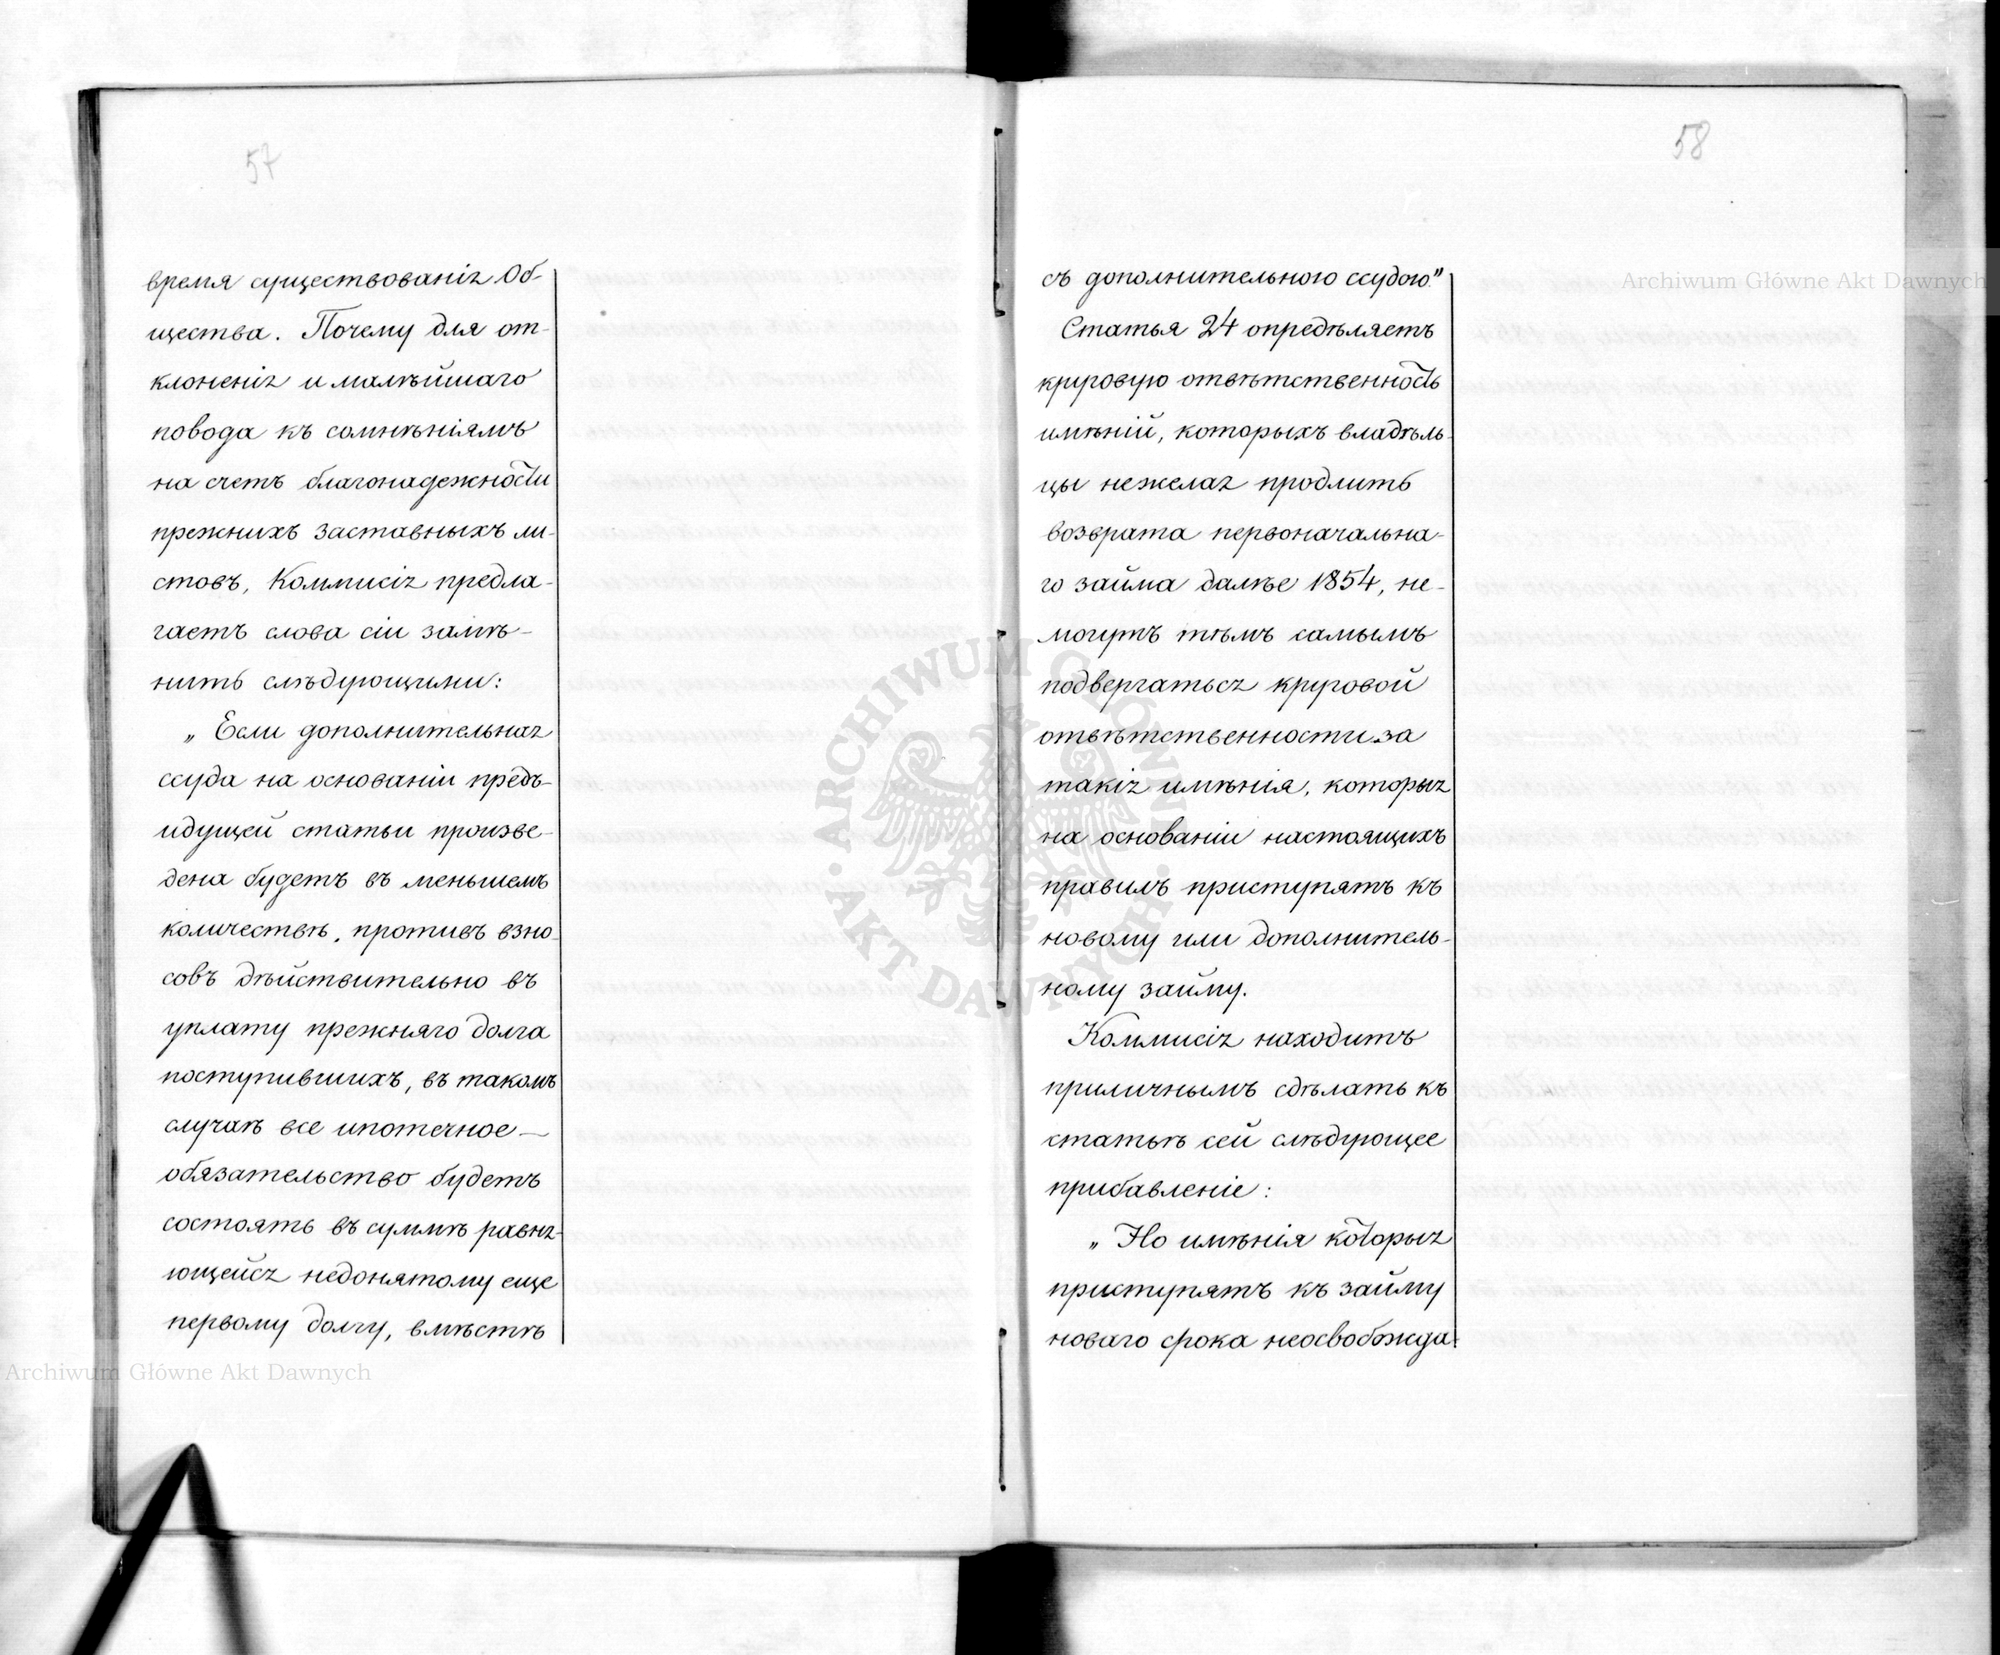 57
время существованія Об-
щества. Почему для от-
клоненія и малѣйшаго
повода къ сомнѣніямъ
на счетъ благонадежности
прежнихъ заставныхъ ли-
стовъ, Коммисія предла-
гаетъ слова сіи замѣ-
нить слѣдующими:
„Если дополнительная
ссуда на основаніи предъ-
идущей статьи произве-
дена будетъ въ меньшемъ
количествѣ, противъ взно-
совъ дѣйствительно въ
уплату прежняго долга
поступившихъ, въ такомъ
случаѣ все ипотечное —
обязательство будетъ
состоять въ суммѣ равня-
ющейся недонятому еще
первому долгу, вмѣстѣ
58
съ дополнительною ссудою"
Статья 24 опредѣляетъ
круговую отвѣтственность
имѣній, которыхъ владѣль-
цы нежелая продлить
возврата первоначальна-
го займа далѣе 1854, не-
могутъ тѣмъ самымъ
подвергаться круговой
отвѣтственности за
такія имѣнія, которыя
на основаніи настоящихъ
правилъ приступятъ къ
новому или дополнитель-
ному займу.
Коммисія находитъ
приличнымъ сдѣлать къ
статьѣ сей слѣдующее
прибавленіе:
„Но имѣнія которыя
приступятъ къ займу
новаго срока неосвобожда-
Archiwum Główne Akt Dawnych
Archiwum Główne Akt Dawnych
ARCHIWUM GŁÓWNE AKT DAWNYCH